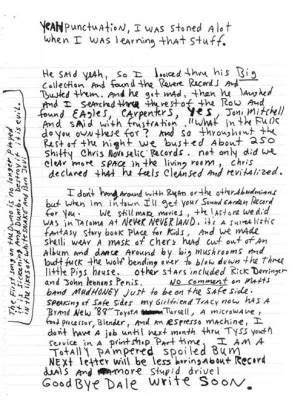 YEAH punctuation, I was stoned alot
when I was learning that stuff.
He said yeah, so I looked thru his Big
Collection and found the Revere Records and
Busted them. And he got mad, then he laughed
And I searched thru the rest of the Row And
found EAGLES, CARPENTERS, YES, Joni Mitchell
And said with frustration, "What in the Fuck
do you own these for? And so throughout the
Rest of the night we busted about 250
Shitty Chris Novoselic Records. not only did we
clear more space in the living room, Chris
declared that he feels cleansed and revitalized.
I dont hang around with Ryan or the other Aberdonians
but when im in town Ill get your Soundgarden Record
for you. We still make movies. the last one we did
was in Tacoma AT NEVER NEVERLAND. its a surrealistic
fantasy story book Place for Kids, And we made
shelli wear a mask of Chers head cut out of An
Album and dance Around by big Mushrooms and
buttfuck the wolf bending over to blow down the three
little Pigs house. other stars included Rick Derringer
and John lennons Penis. No comment on Matts
band MUDHONEY Just to be on the Safe side.
speaking of Safe Sides my Girlfriend Tracy now has a
BRAND NEW '88' Toyota Turcell, A microwave,
food processor, Blender, And an espresso machine, I
don't have a Job until next month thru TYSS youth
service in a printshop Part time, I AM A
TOTALLY Pampered spoiled Bum
NEXT letter will be less boring about Record
deals and more stupid drivel
GOODBYE DALE WRITE SOON.
The first song on the Demo is no longer played
it is sickening And Dumb. Destroy it. it is evil.
in the likes of whitesnake and Bon Jovi